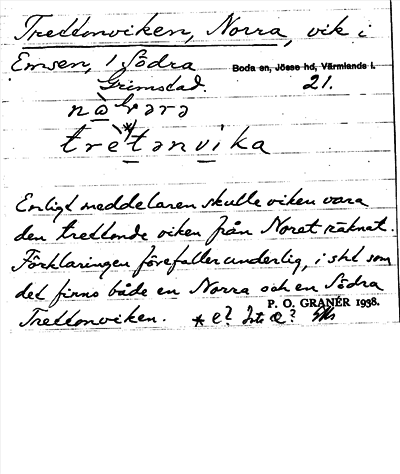 Trettonviken, Norra, vik i
Emsen, 1 Södra
Grimstad.
Boda sn, Jösse hd, Värmlands l.
21.
nòrərə
trètənvika
Enligt meddelaren skulle viken vara
den trettonde viken från Noret räknat.
Förklaringen förefaller underlig, i sht som
det finns både en Norra och en Södra
Trettonviken.
P. O. GRANÉR 1938.
* e? Inte œ?